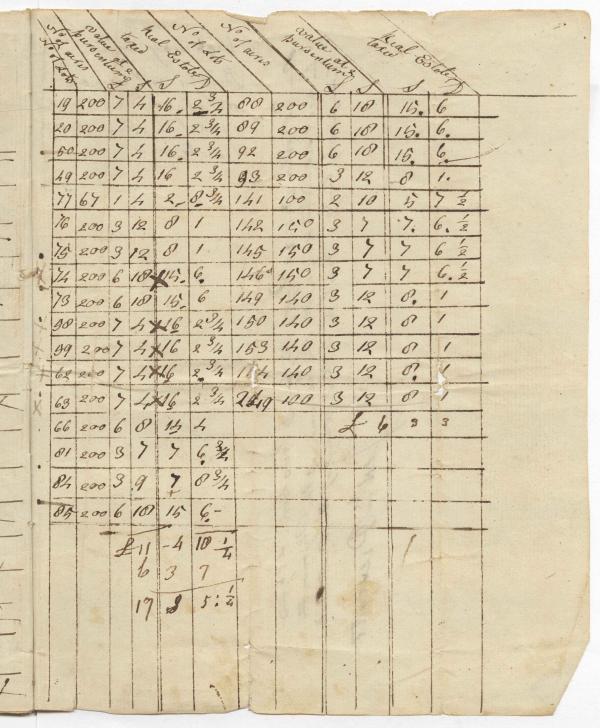 No of Lots No of acres value at a pursenting taxed Real Estate No of Lots No of acres value at a pursenting taxed Real Estate
£ S S £ S S
19 200 7 4 16 2 3/4 88 200 6 18 15. 6
20 200 7 4 16 2 3/4 89 200 6 18 15. 6.
50 200 7 4 16 2 3/4 92 200 6 18 15. 6.
49 200 7 4 16 2 3/4 93 200 3 12 8 1.
77 67 1 4 2 8 3/4 141 100 2 10 5 7 1/2
76 200 3 12 8 1 142 150 3 7 7. 6. 1/2
75 200 3 12 8 1 145 150 3 7 7 6 1/2
74 200 6 18 15. 6. 146 150 3 7 7 6. 1/2
73 200 6 18 15. 6 149 140 3 12 8. 1
98 200 7 4 16 2 3/4 150 140 3 12 8 1
99 200 7 4 16 2 3/4 153 140 3 12 8 1
62 200 7 4 16 2. 3/4 140 3 12 8. 1
63 200 7 4 16 2 3/4 100 3 12 8 1
66 200 6 8 14 4 £ 6 3 3
81 200 3 7 7 6
84 200 3 9 7 8 3/4
85 200 6 18 15 6-
£11 -4 10 1/4
6 3 7
17 8 5: 1/4